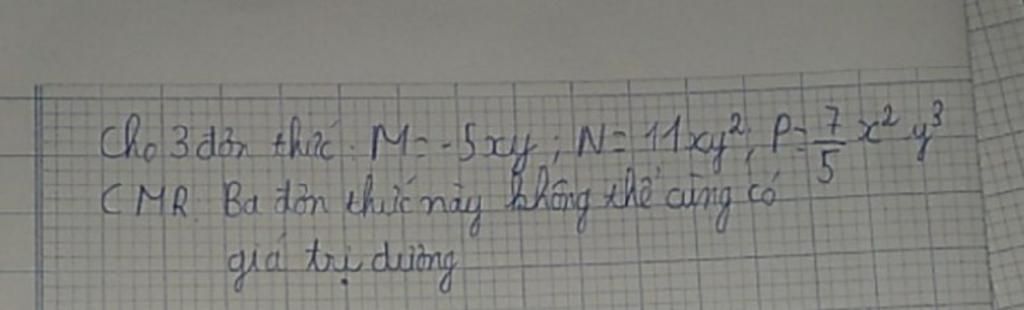 Cho 3 đơn thức. M = -5xy ; N = 11xy²; P = 7/5 x² y³
CMR. Ba đơn thức này không thể cùng có
giá trị dương